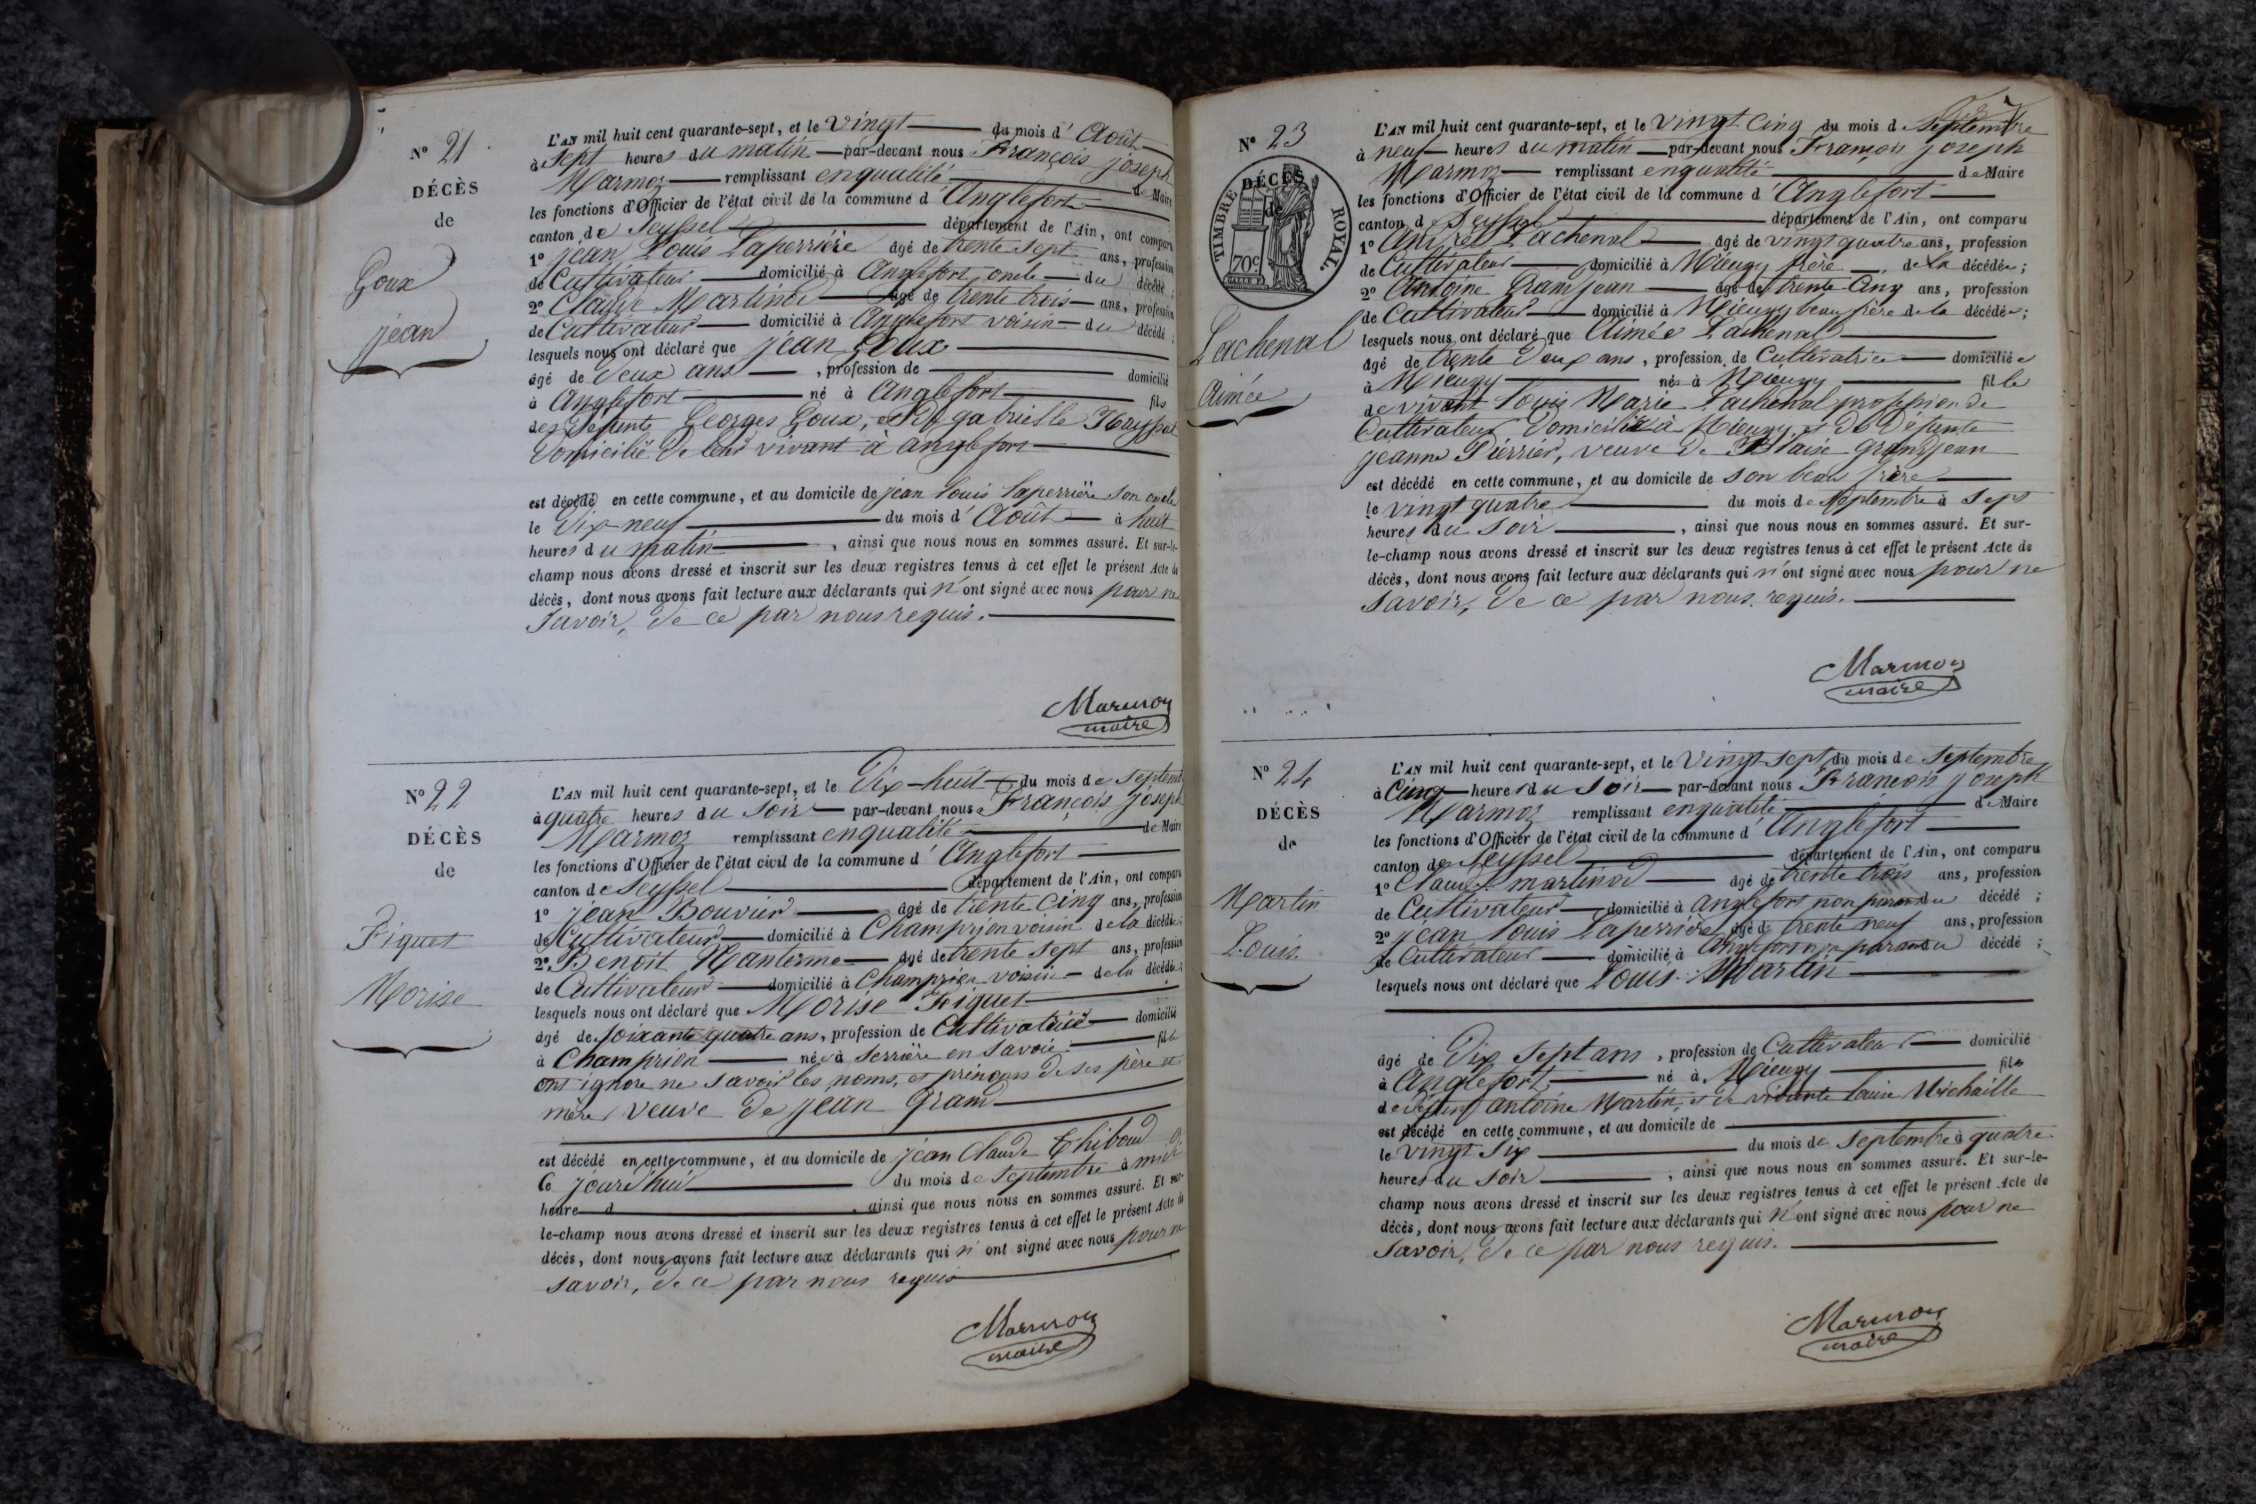 N° 21
DÉCÈS
de
Goux
jean
L'AN mil huit cent quarante-sept, et le vingt du mois d' Août
à sept heures du matin par-devant nous François joseph
Marmoz remplissant en qualité de Maire
les fonctions d'Officier de l'état civil de la commune d'Anglefort
canton de Seyssel département de l'Ain, ont comparu
1° jean Louis Laperrière âgé de trente sept ans, profession
de Cultivateur domicilié à Anglefort, oncle du décédé ;
2° Claude Martinod âgé de trente trois ans, profession
de Cultivateur domicilié à Anglefort voisin du décédé ;
lesquels nous ont déclaré que jean Goux
âgé de Deux ans , profession de domicilié
à Anglefort né à Anglefort fils
des Défunts Georges Goux, et De gabrielle
Domicilié De leur vivant à anglefort
est décédé en cette commune, et au domicile de jean Louis Laperrière son oncle
le Dix-neuf du mois d'Août à huit
heures du matin , ainsi que nous nous en sommes assuré. Et sur-le-
champ nous avons dressé et inscrit sur les deux registres tenus à cet effet le présent Acte de
décès, dont nous avons fait lecture aux déclarants qui n'ont signé avec nous pour ne
Savoir, de ce par nous requis.
Marmoz
maire
N° 22
DÉCÈS
de
Figuet
Morise
L'AN mil huit cent quarante-sept, et le Dix-huit du mois de septemb
à quatre heures du soir par-devant nous François joseph
Marmoz remplissant en qualité de Maire
les fonctions d'Officier de l'état civil de la commune d'Anglefort
canton de Seyssel département de l'Ain, ont comparu
1° jean Bouvier âgé de trente cinq ans, profession
de Cultivateur domicilié à Champrion voisin de la décédée ;
2° Benoit Manterne âgé de trente sept ans, profession
de Cultivateur domicilié à Champrion voisin de la décédée ;
lesquels nous ont déclaré que Morise Figuet
âgé de soixante quatre ans, profession de Cultivatrice domicilié
à Champrion née à Serrière en Savoie fille
ont ignore ne savoir les noms, et prénoms de ses père et
mère, veuve De jean Grand
est décédé en cette commune, et au domicile de jean Claude Thiboud
Ce jourd'hui du mois de septembre à midi
heure d , ainsi que nous nous en sommes assuré. Et sur-
le-champ nous avons dressé et inscrit sur les deux registres tenus à cet effet le présent Acte de
décès, dont nous avons fait lecture aux déclarants qui n'ont signé avec nous pour ne
savoir, de ce par nous requis
Marmoz
maire
N° 23
DÉCÈS
de
TIMBRE ROYAL.
70c
Lachenal
Aimée
L'AN mil huit cent quarante-sept, et le vingt cinq du mois de Septembre
à neuf heures du matin par-devant nous François joseph
Marmoz remplissant en qualité de Maire
les fonctions d'Officier de l'état civil de la commune d'Anglefort
canton de Seyssel département de l'Ain, ont comparu
1° André Lachenal âgé de vingt quatre ans, profession
de Cultivateur domicilié à Mieugy frère de la décédée ;
2° Antoine Grandjean âgé de trente-Cinq ans, profession
de Cultivateur domicilié à Mieugy beau frère de la décédée ;
lesquels nous ont déclaré que Aimée Lachenal
âgé de trente Deux ans, profession de Cultivatrice domiciliée
à Mieugy née à Mieugy fille
de vivant Louis Marie Lachenal profession de
Cultivateur Domicilié à Mieugy, et De Défunte
jeanne Pierrier, veuve De Blaise grandjean
est décédé en cette commune, et au domicile de son beau frère
le vingt quatre du mois de Septembre à sept
heures du Soir , ainsi que nous nous en sommes assuré. Et sur-
le-champ nous avons dressé et inscrit sur les deux registres tenus à cet effet le présent Acte de
décès, dont nous avons fait lecture aux déclarants qui n'ont signé avec nous pour ne
savoir, de ce par nous requis.
Marmoz
maire
N° 24
DÉCÈS
de
Martin
Louis
L'AN mil huit cent quarante-sept, et le vingt sept du mois de septembre
à Cinq heures du soir par-devant nous François joseph
Marmoz remplissant en qualité de Maire
les fonctions d'Officier de l'état civil de la commune d'Anglefort
canton de Seyssel département de l'Ain, ont comparu
1° Claude martinod âgé de trente trois ans, profession
de Cultivateur domicilié à anglefort non parent du décédé ;
2° jean Louis Laperrière âgé de trente neuf ans, profession
de Cultivateur domicilié à Anglefort non parent du décédé ;
lesquels nous ont déclaré que Louis Martin
âgé de Dix sept ans , profession de Cultivateur domicilié
à Anglefort né à Mieugy fils
de Défunt antoine Martin, et de vivante Louise Michaille
est décédé en cette commune, et au domicile de
le vingt six du mois de septembre à quatre
heures du soir , ainsi que nous nous en sommes assuré. Et sur-le-
champ nous avons dressé et inscrit sur les deux registres tenus à cet effet le présent Acte de
décès, dont nous avons fait lecture aux déclarants qui n'ont signé avec nous pour ne
savoir, de ce par nous requis.
Marmoz
maire